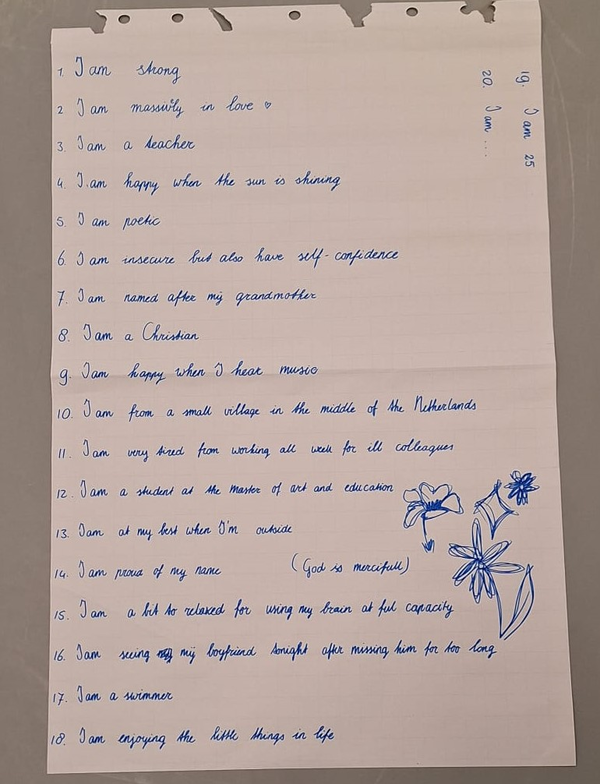 1. I am strong
2 I am massivly in love ♡
3. I am a teacher
4. I am happy when the sun is shining
5. I am poetic
6. I am insecure but also have self-confidence
7. I am named after my grandmother
8. I am a Christian
9. I am happy when I hear music
10. I am from a small village in the middle of the Netherlands
11. I am very tired from working all week for ill colleagues
12. I am a student at the master of art and education
13. I am at my best when I'm outside
14. I am proud of my name (God is mercifull)
15. I am a bit to relaxed for using my brain at ful capacity
16. I am seeing my boyfriend tonight after missing him for too long
17. I am a swimmer
18. I am enjoying the little things in life
19. I am 25
20. I am ...